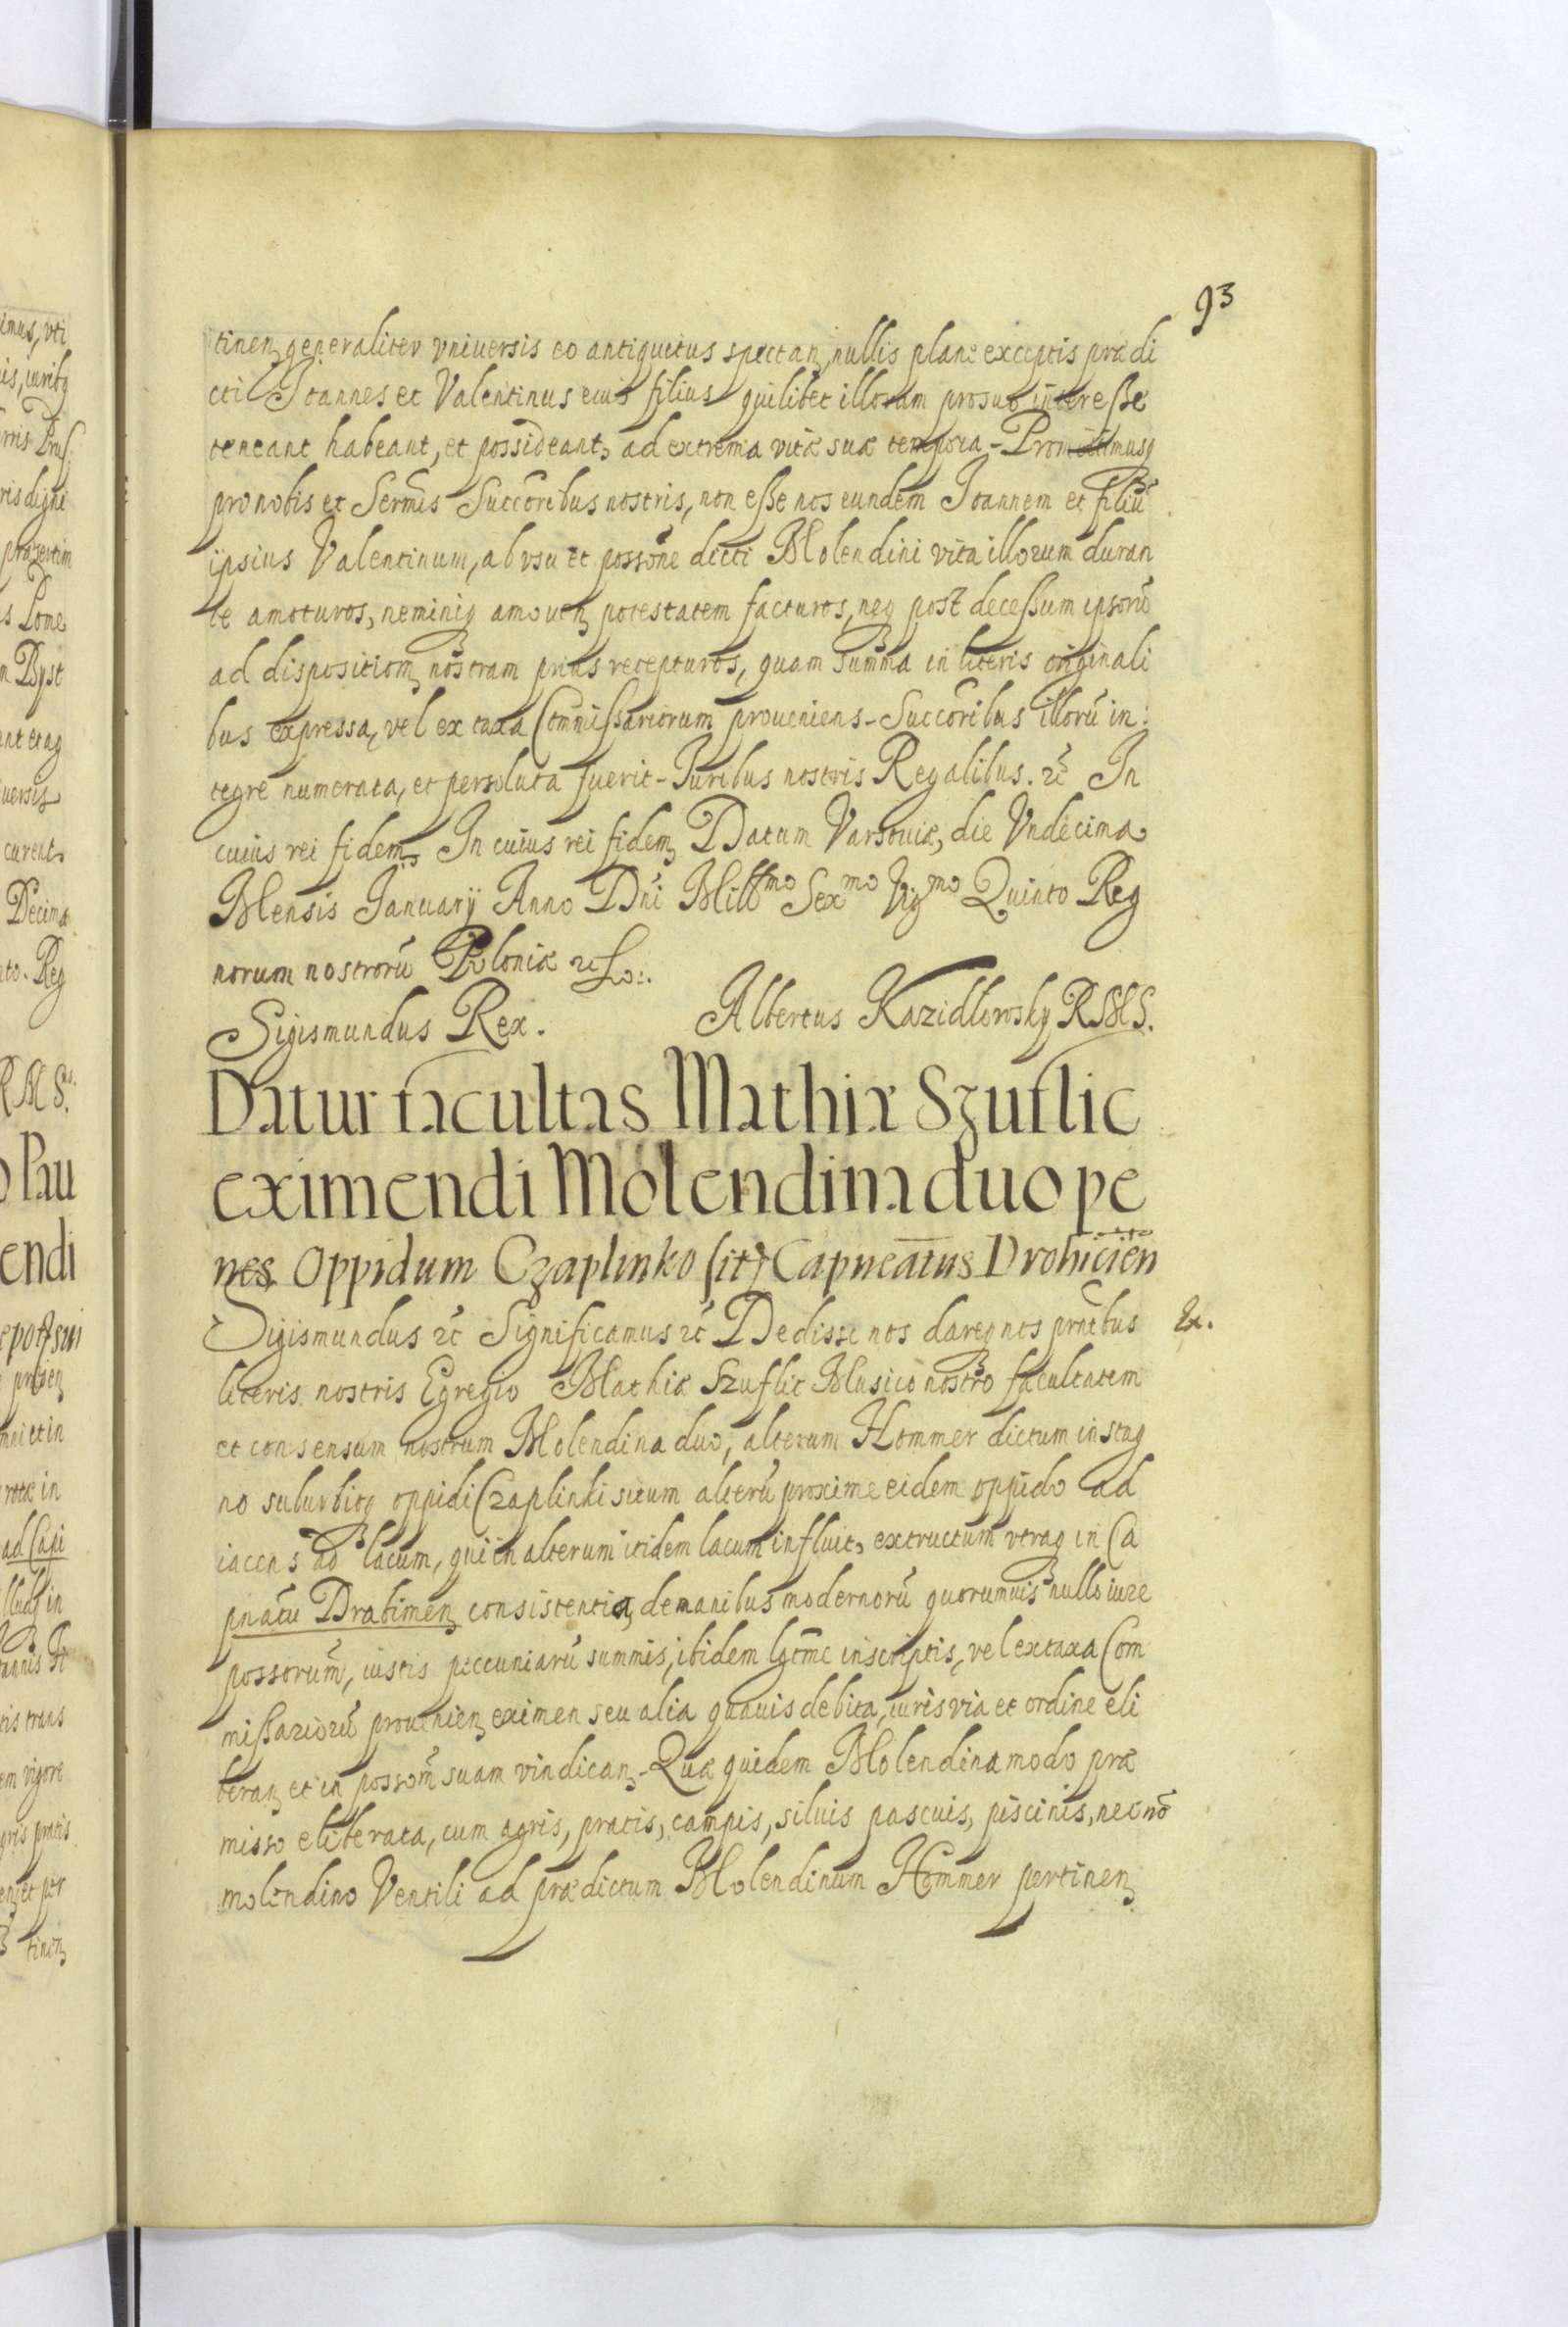 93
tinen generaliter vniuersis eo antiquitus spectan, nullis plane exceptis prædi
cti Joannes et Valentinus eius filius quilibet illorum pro suo interesse
teneant habeant, et possideant, ad extrema vitæ suæ tempora - Promittimusq
pro nobis et Sermis Succoribus nostris, non esse nos eundem Joannem et filiū
ipsius Valentinum, ab vsu et possone dicti Molendini vita illorum duran
te amoturos, neminiq amouen potestatem facturos, neq post decessum ipsorū
ad dispositiom nostram prius recepturos, quam summa in literis originali
bus expressa, vel ex taxa Commissariorum proueniens - Succoribus illorū in
tegre numerata, et persoluta fuerit - Juribus nostris Regalibus. &c In
cuius rei fidem. In cuius rei fidem Datum Varsouiæ, die Vndecima
Mensis January Anno Dni Millmo Sexmo Vigmo Quinto Reg
norum nostrorū Poloniæ &c
Sigismundus Rex. Albertus Kazidlowsky RMS.
Datur facultas Mathiæ Szuflic
eximendi Molendina duo pe
nes Oppidum Czaplinko sit Capneatus Drohicien
Sigismundus &c Significamus &c Dedisse nos dareq nos prntbus
Ex.
literis nostris Egregio Mathiæ Szuflic Musico nostro facultatem
et consensum nostrum Molendina duo, alterum Hommer dictum in stag
no suburbioq oppidi Czaplinki situm alterū proxime eidem oppido ad
iacens ad lacum, qui in alterum itidem lacum influit, extructum vtraq in Ca
pnatu Drahimen consistentia, de manibus modernorū quorumuis nullo iure
possorum, iustis peccuniarū summis, ibidem lgtme inscriptis, vel ex taxa Com
missariorū prouenien eximen seu alia quauis debita, iuris via et ordine eli
beran et in possom suam vindican - Quæ quidem Molendina modo præ
misso eliberata, cum agris, pratis, campis, siluis pascuis, piscinis, necnō
molendino Ventili ad prædictum Molendinum Hommer pertinen